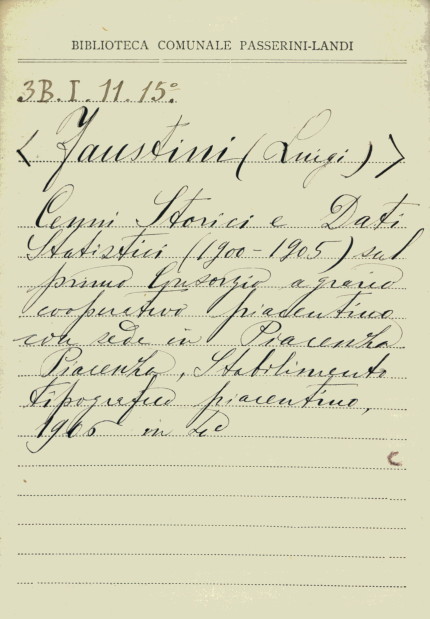 BIBLIOTECA COMUNALE PASSERINI-LANDI
3B.I.11.15º.
< Faustini (Luigi) >
Cenni Storici e Dati
Statistici (1900-1905) sul
primo Consorzio agrario
cooperativo piacentino
con sede in Piacenza
Piacenza, Stabilimento
tipografico piacentino,
1905 in
C